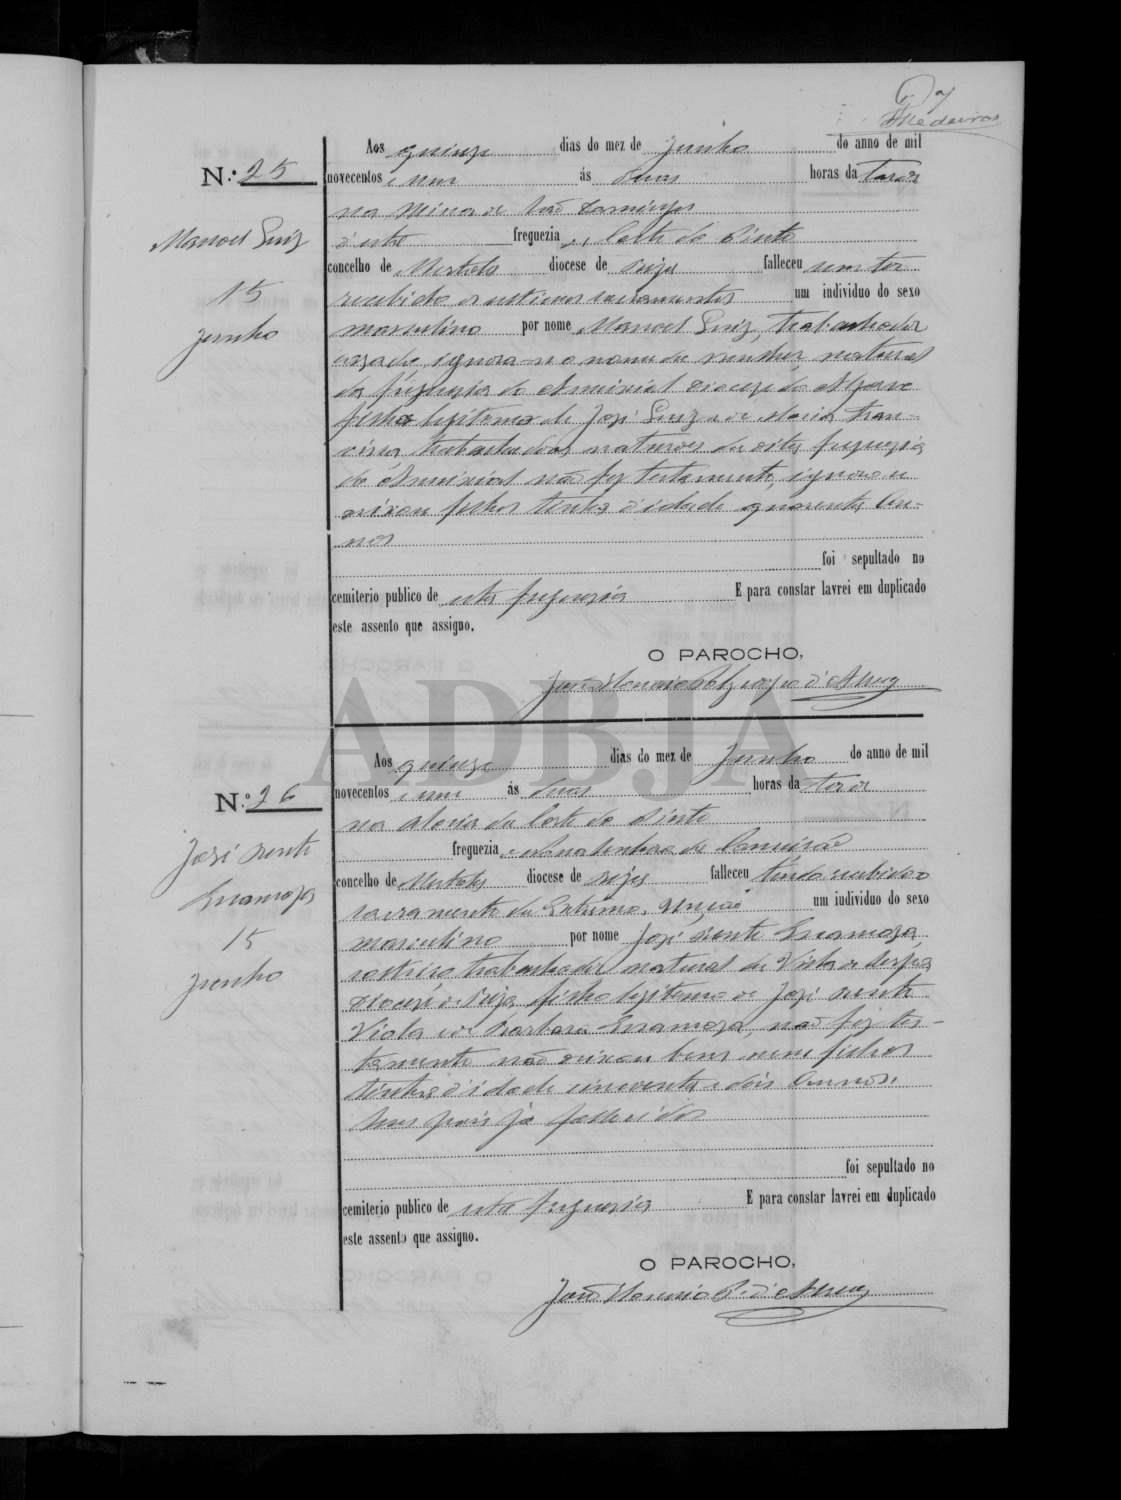 7
Medeiros
Aos quinze dias do mez de Junho do anno de mil
N.º 25
novecentos e um ás duas horas da tarde
na Mina de São Domingos
Manoel Luiz
d'esta freguezia de Corte do Pinto
concelho de Mertola diocese de Beja falleceu sem ter
15
recebido os ultimos sacramentos um individuo do sexo
Junho
masculino por nome Manoel Luiz, trabalhador
casado, ignora-se o nome da mulher, natural
da freguezia do Ameixial diocese do Algarve
filho legitimo de José Luiz e de Maria Fran-
cisca trabalhadores, naturaes da dita freguezia
do Ameixial não fez testamento, ignora-se
deixou filhos tinha d'idade quarenta an-
nos
foi sepultado no
cemiterio publico de esta freguezia E para constar lavrei em duplicado
este assento que assigno.
O PAROCHO,
João d'Abreu
ADBJA
Aos quinze dias do mez de Junho do anno de mil
N.º 26
novecentos e um ás duas horas da tarde
na Aldeia da Corte do Pinto
José Bento
freguezia
concelho de Mertola diocese de Beja falleceu tendo recebido o
Enamorado
sacramento da Extrema Unção um individuo do sexo
15
masculino por nome José Bento
Junho
trabalhador natural de
diocese de Beja filho legitimo de José Bento
Viola e de Barbara não fez tes-
tamento não deixou bens nem filhos
tinha d'idade cincoenta e dois annos
seus pais já fallecidos
foi sepultado no
cemiterio publico de esta freguezia E para constar lavrei em duplicado
este assento que assigno.
O PAROCHO,
João d'Abreu